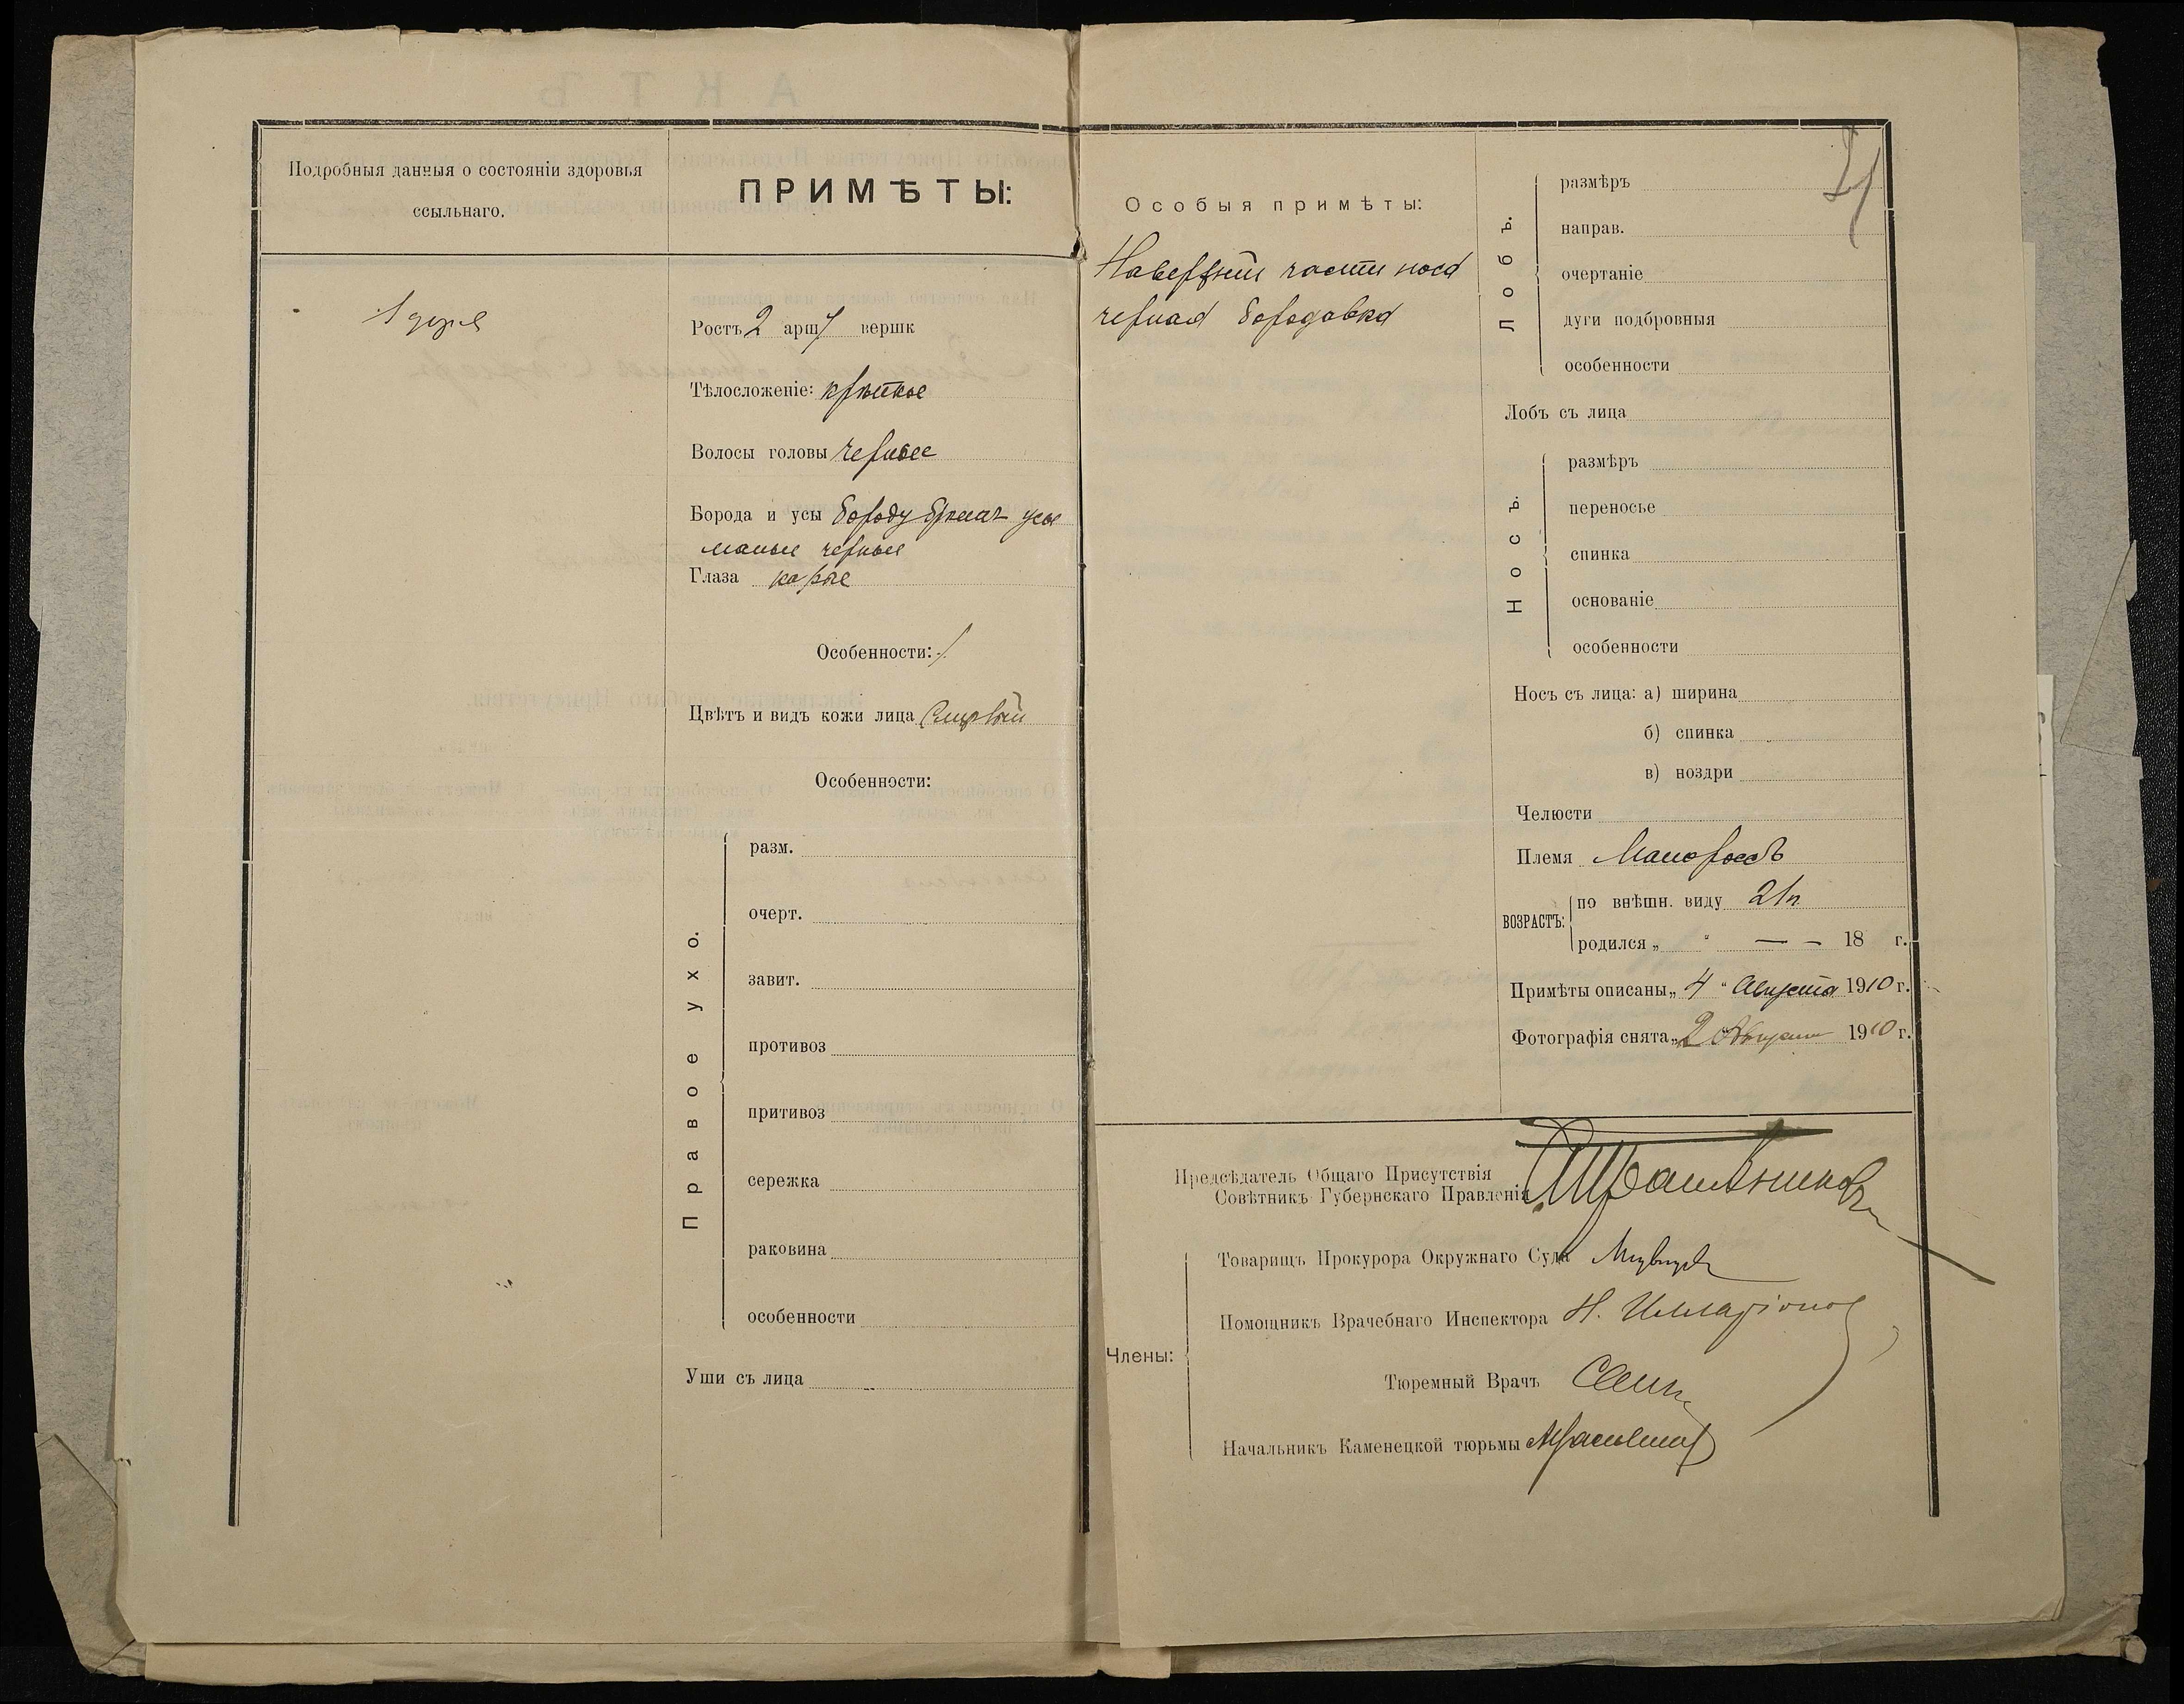 Подробныя данныя о состояніи здоровья
ссыльнаго.
ПРИМѢТЫ:
Ростъ 2 арш 7 вершк
Тѣлосложеніе: крѣпкое
Волосы головы черные
Борода и усы бороду бреетъ усы
малые черные
Глаза каріе
Особенности: -/
Цвѣтъ и видъ кожи лица
Особенности:
Правое ухо.
разм.
очерт.
завит.
противоз
притивоз
сережка
раковина
особенности
Уши съ лица
Особыя примѣты:
На верхней части носа
черная бородавка
Лобъ.
размѣръ
направ.
очертаніе
дуги подбровныя
особенности
Лобъ съ лица
Носъ.
размѣръ
переносье
спинка
основаніе
особенности
Носъ съ лица: а) ширина
б) спинка
в) ноздри
Челюсти
Племя Малороссъ
ВОЗРАСТЪ:
по внѣшн. виду 21
родился „ “ — — 18 г.
Примѣты описаны „ 4 “ Августа 1910 г.
Фотографія снята „ 2 Августа 1910 г.
Предсѣдатель Общаго Присутствія
Совѣтникъ Губернскаго Правленія
Товарищъ Прокурора Окружнаго Суда
Члены:
Помощникъ Врачебнаго Инспектора Н. Илларіонов
Тюремный Врачъ
Начальникъ Каменецкой тюрьмы